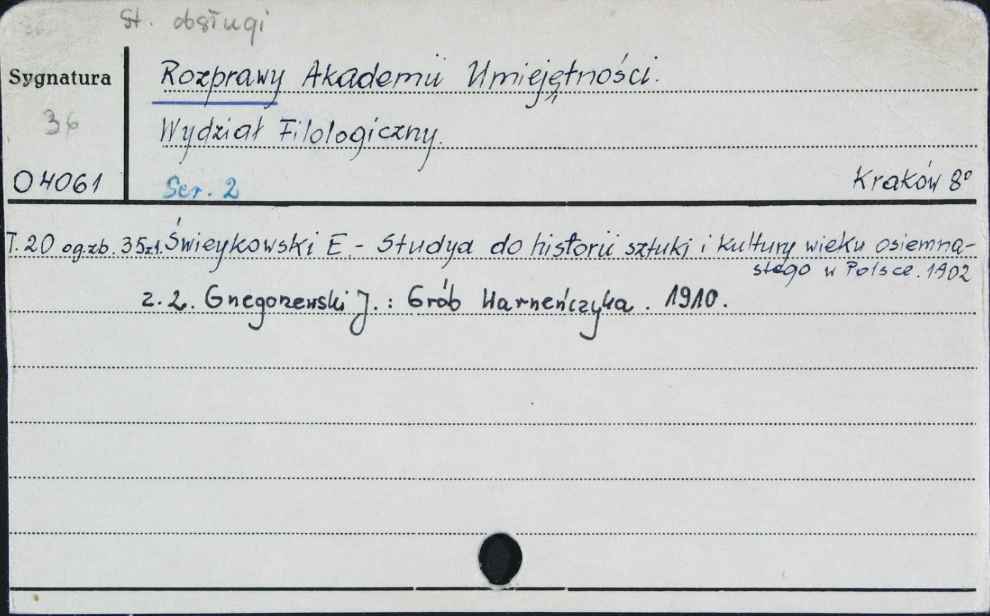 St. obsługi
Sygnatura
Rozprawy Akademii Umiejętności.
36
Wydział Filologiczny.
O 4061
Ser. 2
Kraków 8°
T. 20 og.zb. 35zł. Świeykowski E. - Studya do historii sztuki i kultury wieku osiemna-
stego w Polsce. 1902
z. 2. Gnegorzewski J. : Grób Warneńczyka. 1910.